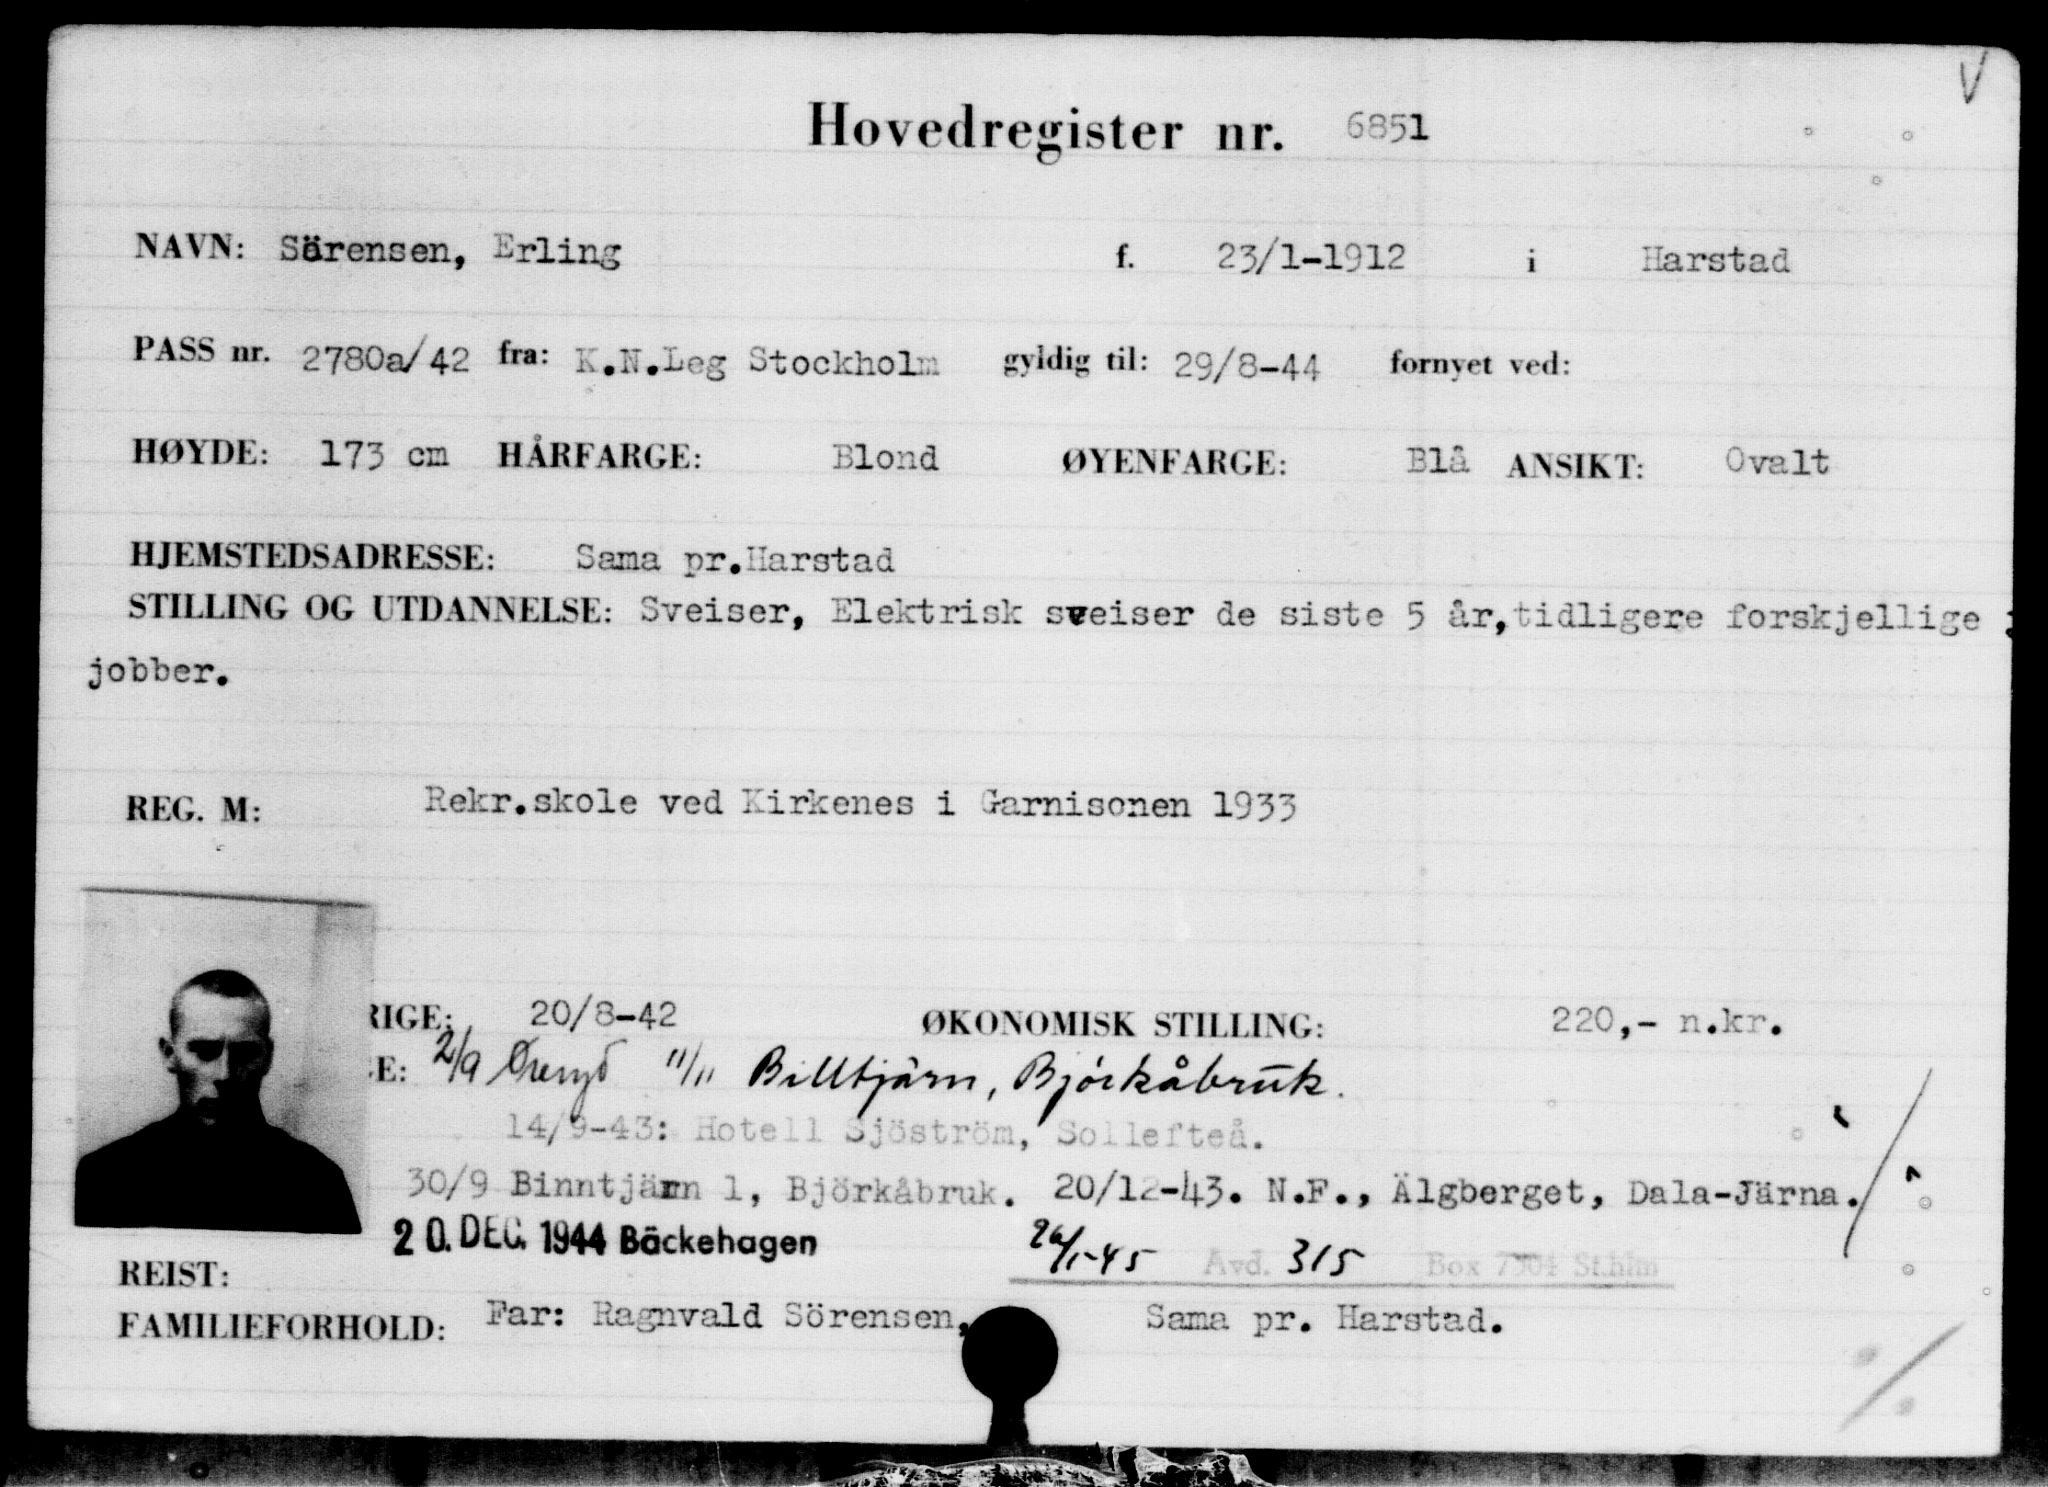 V
Hovedregister nr. 6851
NAVN: Sörensen, Erling f. 23/1-1912 i Harstad
PASS nr. 2780a/42 fra: K.N.Leg Stockholm gyldig til: 29/8-44 fornyet ved:
HØYDE: 173 cm HÅRFARGE: Blond ØYENFARGE: Blå ANSIKT: Ovalt
HJEMSTEDSADRESSE: Sama pr.Harstad
STILLING OG UTDANNELSE: Sveiser, Elektrisk sveiser de siste 5 år,tidligere forskjellige j
jobber.
REG. M: Rekr.skole ved Kirkenes i Garnisonen 1933
RIGE: 20/8-42 ØKONOMISK STILLING: 220,- n.kr.
E: 2/9 11/11 Billtjärn, Björkåbruk.
14/9-43: Hotell Sjöström, Sollefteå.
30/9 Binntjärn 1, Björkåbruk. 20/12-43. N.F., Älgberget, Dala-Järna.
20. DEC. 1944 Bäckehagen 26/1-45 Avd. 315 Box 7304 St.hlm
REIST:
FAMILIEFORHOLD: Far: Ragnvald Sörensen, Sama pr. Harstad.